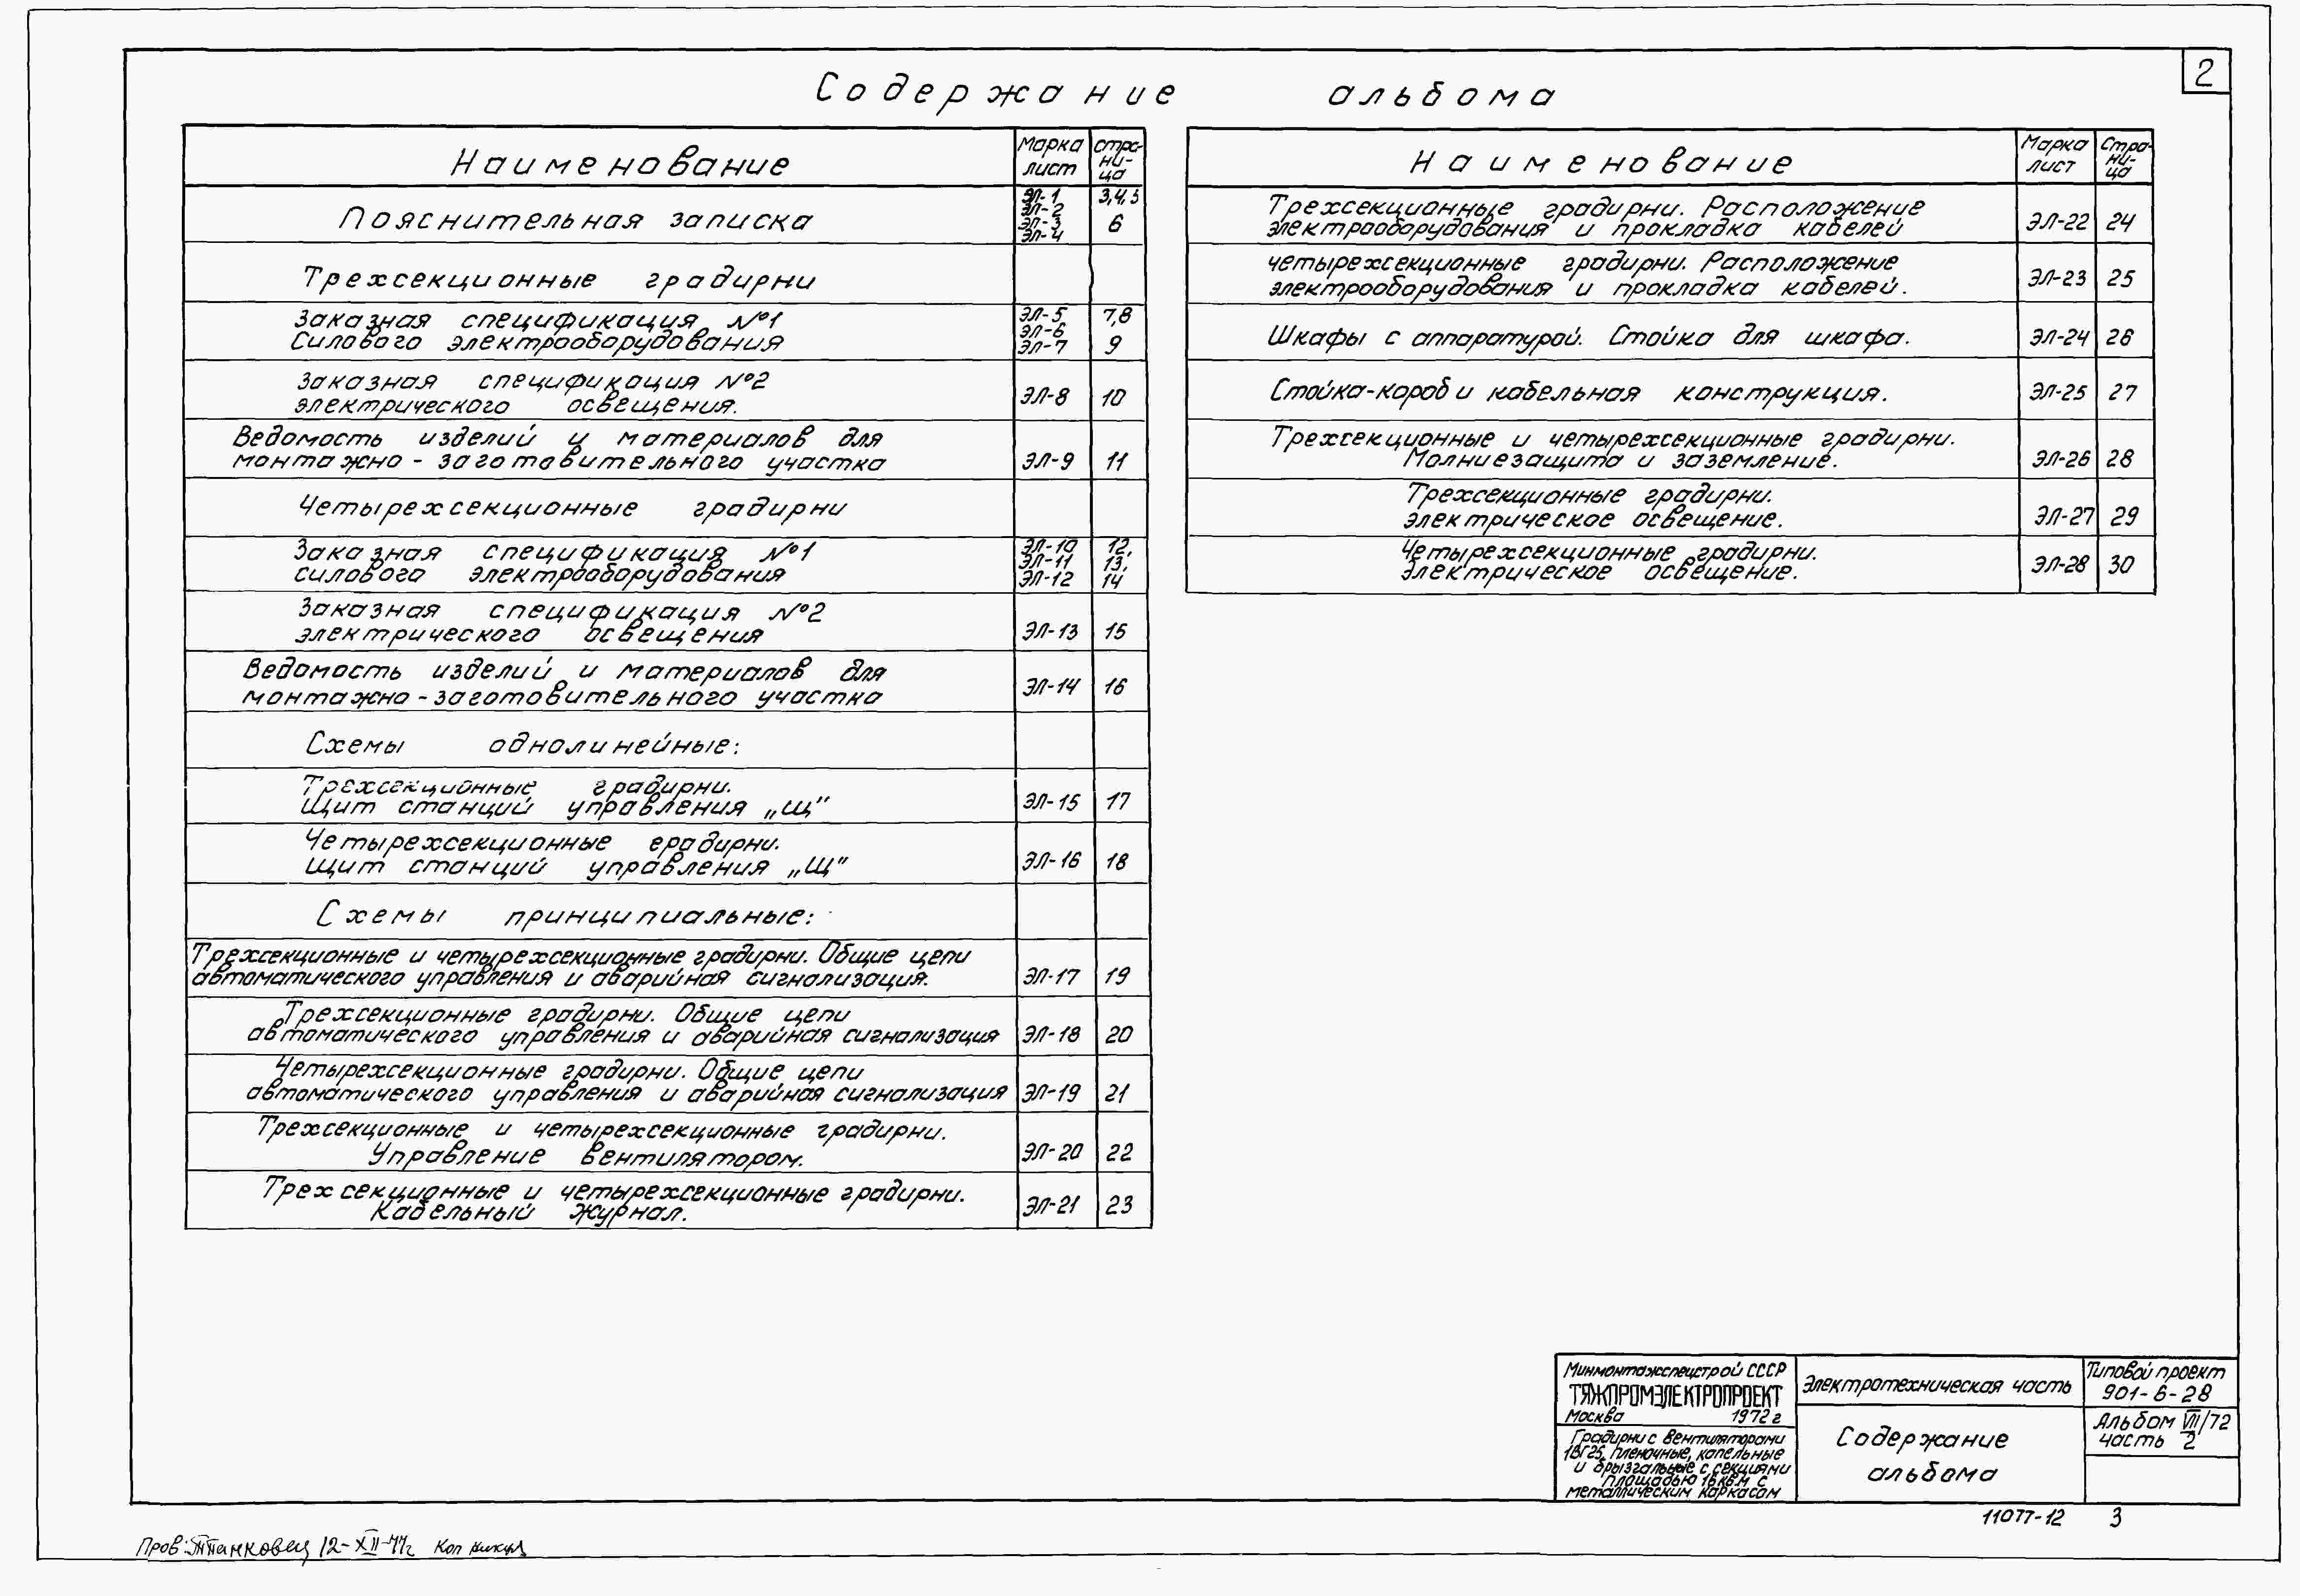 2
Содержание альбома
Наименование
Марка лист
Стра-ни-ца
Пояснительная записка
ЭЛ-1 3,4,5
ЭЛ-2
ЭЛ-3 6
ЭЛ-4
Трехсекционные градирни
Заказная спецификация №1 ЭЛ-5 7,8
ЭЛ-6
Силового электрооборудования ЭЛ-7 9
Заказная спецификация №2
электрического освещения. ЭЛ-8 10
Ведомость изделий и материалов для
монтажно-заготовительного участка ЭЛ-9 11
Четырехсекционные градирни
Заказная спецификация №1 ЭЛ-10 12,
ЭЛ-11 13,
силового электрооборудования ЭЛ-12 14
Заказная спецификация №2
электрического освещения ЭЛ-13 15
Ведомость изделий и материалов для
монтажно-заготовительного участка ЭЛ-14 16
Схемы однолинейные:
Трехсекционные градирни.
Щит станций управления „Щ" ЭЛ-15 17
Четырехсекционные градирни.
Щит станций управления „Щ" ЭЛ-16 18
Схемы принципиальные:
Трехсекционные и четырехсекционные градирни. Общие цепи
автоматического управления и аварийная сигнализация. ЭЛ-17 19
Трехсекционные градирни. Общие цепи
автоматического управления и аварийная сигнализация ЭЛ-18 20
Четырехсекционные градирни. Общие цепи
автоматического управления и аварийная сигнализация ЭЛ-19 21
Трехсекционные и четырехсекционные градирни.
Управление вентилятором. ЭЛ-20 22
Трехсекционные и четырехсекционные градирни.
Кабельный журнал. ЭЛ-21 23
Наименование
Марка лист
Стра-ни-ца
Трехсекционные градирни. Расположение
электрооборудования и прокладка кабелей ЭЛ-22 24
четырехсекционные градирни. Расположение
электрооборудования и прокладка кабелей. ЭЛ-23 25
Шкафы с аппаратурой. Стойка для шкафа. ЭЛ-24 26
Стойка-короб и кабельная конструкция. ЭЛ-25 27
Трехсекционные и четырехсекционные градирни.
Молниезащита и заземление. ЭЛ-26 28
Трехсекционные градирни.
электрическое освещение. ЭЛ-27 29
Четырехсекционные градирни.
Электрическое освещение. ЭЛ-28 30
Минмонтажспецстрой СССР
ТЯЖПРОМЭЛЕКТРОПРОЕКТ
Москва 1972г
Градирни с вентиляторами
1ВГ25, пленочные, капельные
и брызгальные с секциями
площадью 16кв.м с
металлическим каркасом
Электротехническая часть
Содержание
альбома
Типовой проект
901-6-28
Альбом VII/72
часть 2
11077-12 3
Пров: 12-XII-77г Коп